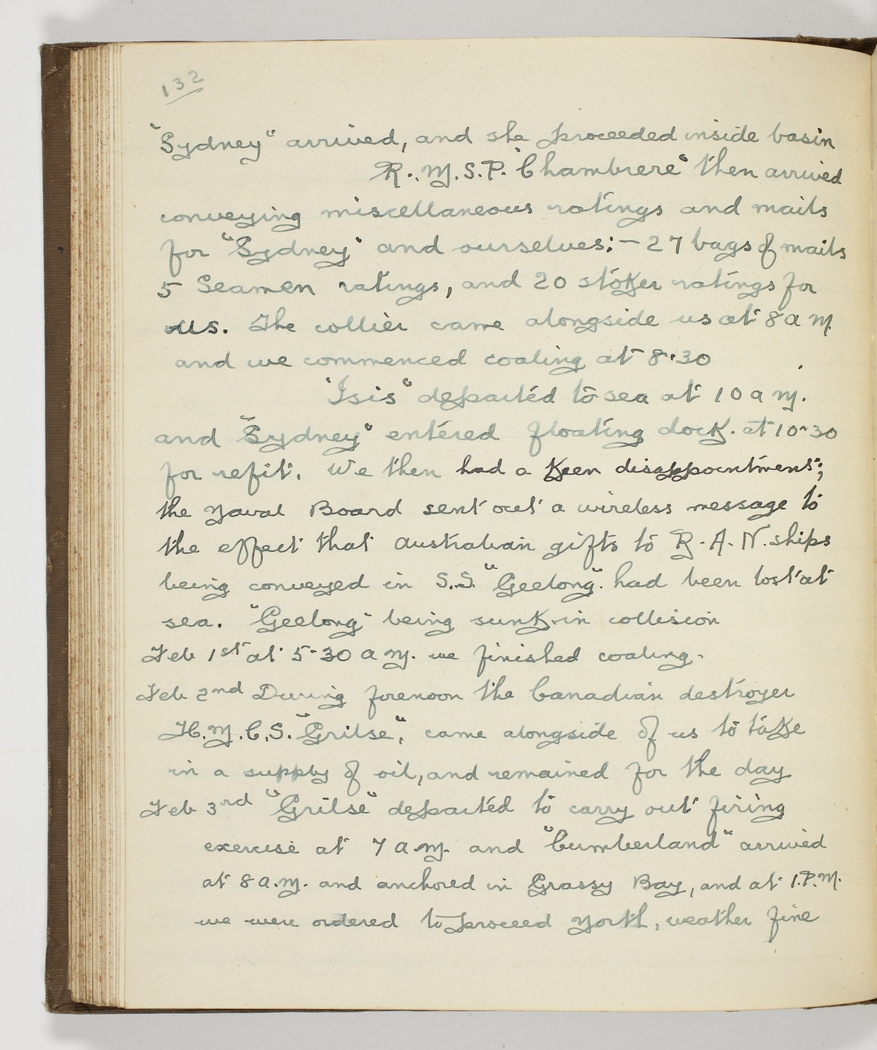 132
"Sydney" arrived, and she proceeded inside basin
R.M.S.P. "Chambrere" then arrived
conveying miscellaneous ratings and mails
for "Sydney" and ourselves:- 27 bags of mails
5 Seamen ratings, and 20 stoker ratings for
us. The collier came alongside us at 8 a m
and we commenced coaling at 8.30
"Isis" departed to sea at 10 a m.
and "Sydney" entered floating dock. at 10-30
for refit. We then had a keen disappointment;
the Naval Board sent out a wireless message to
the effect that Australian gifts to R.A.N. ships
being conveyed in S.S. "Geelong". had been lost at
sea. "Geelong" being sunk in collision
Feb 1st at 5-30 a m. we finished coaling.
Feb 2nd During forenoon the Canadian destroyer
H.M.C.S. "Grilse", came alongside of us to take
in a supply of oil, and remained for the day
Feb 3rd "Grilse" departed to carry out firing
exercise at 7 a.m. and "Cumberland" arrived
at 8 a.m. and anchored in Grassy Bay, and at 1.P.M.
we were ordered to proceed North, weather fine